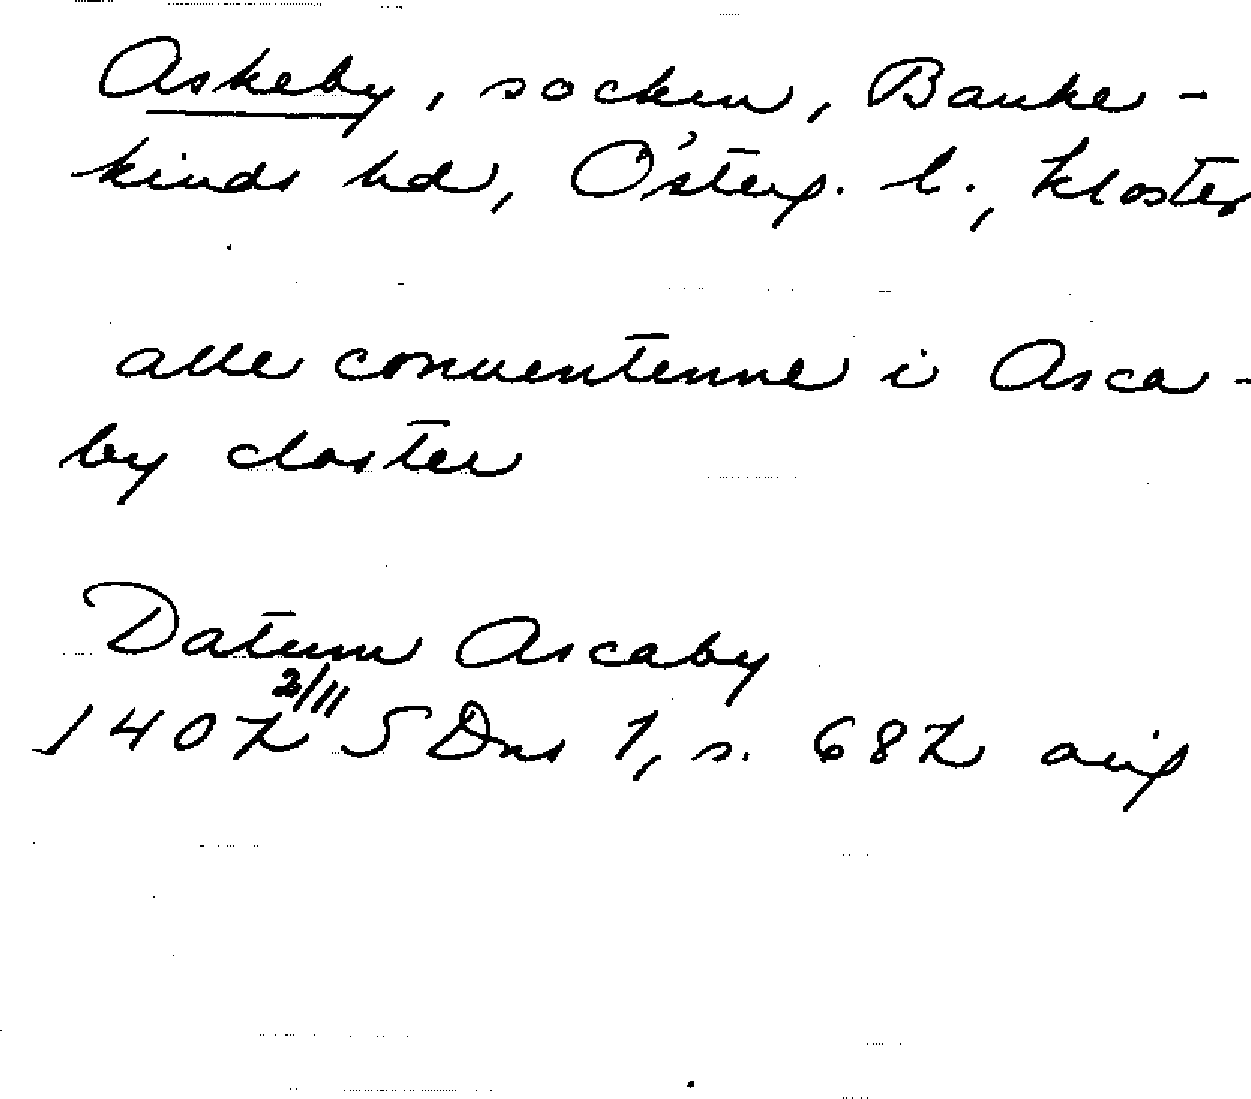 Askeby, socken, Banke-
kinds hd, Österg. l., kloster
alle conuentenne i Asca-
by closter
Datum Ascaby
1407 2/11 SDns 1, s. 687 avig